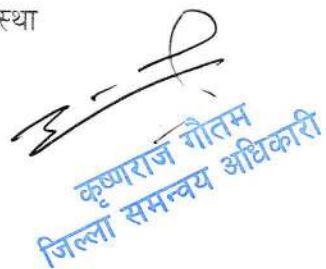 स्था
कृष्णराज गौतम
जिल्ला समन्वय अधिकारी